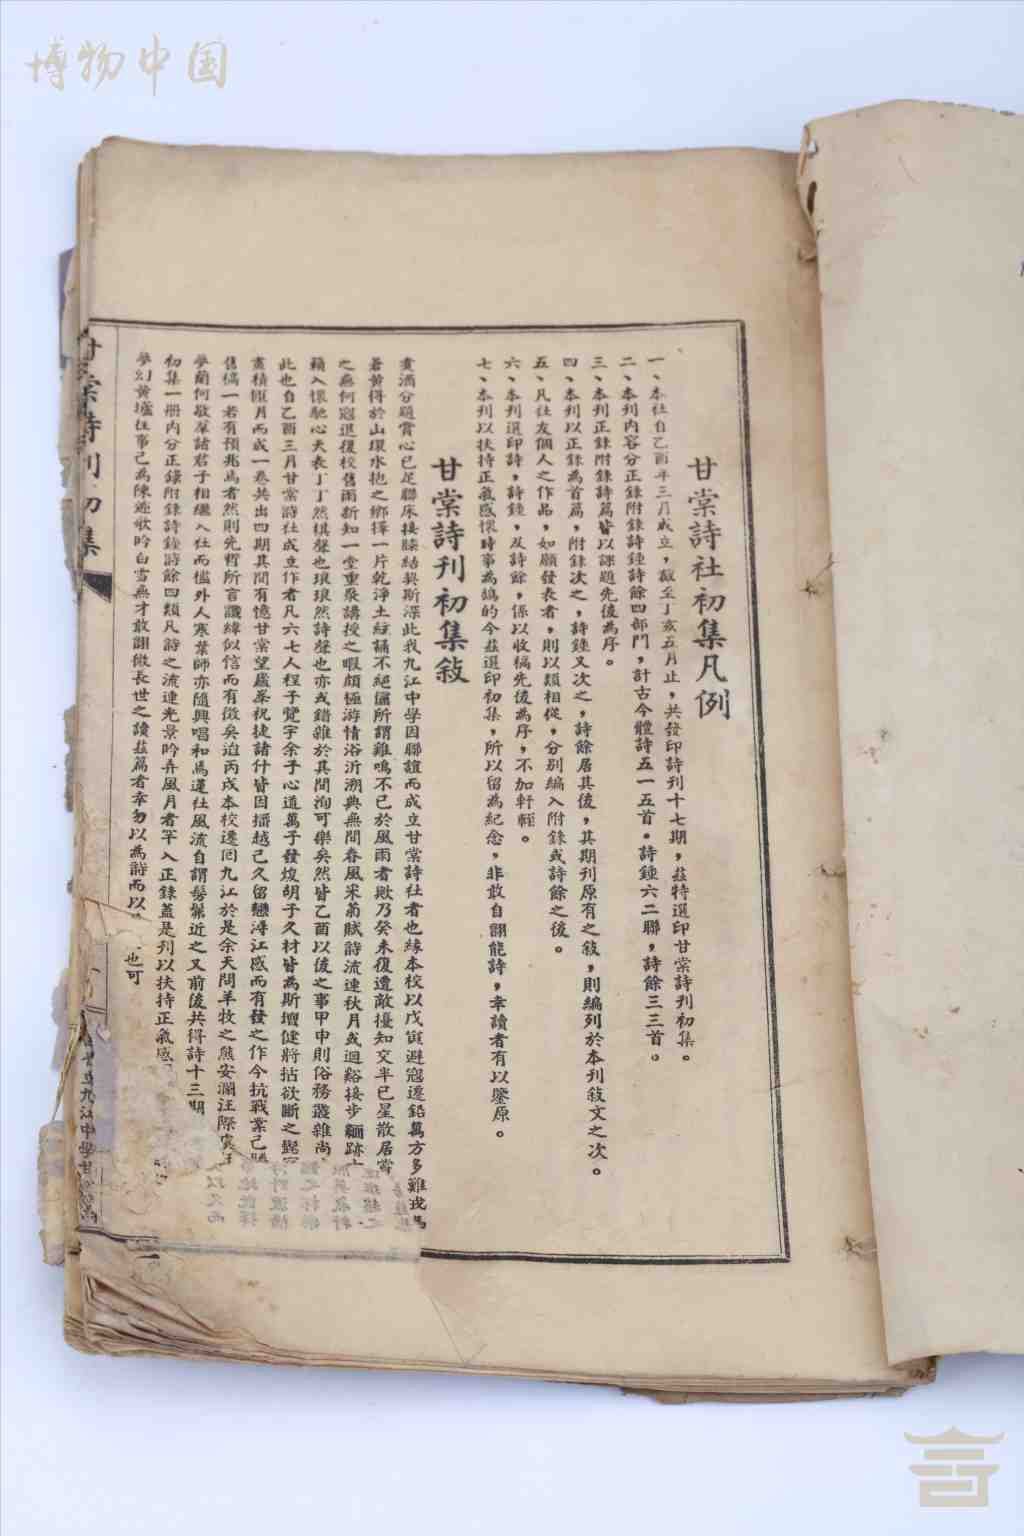 博物中国
甘棠詩社初集凡例
一、本社自乙酉年三月成立，截至丁亥五月止，共發印詩刊十七期，茲特選印甘棠詩刊初集。
二、本刊內容分正錄附錄詩鐘詩餘四部門，計古今體詩五一五首。詩鐘六二聯，詩餘三三首。
三、本刊正錄附錄詩篇皆以課題先後為序。
四、本刊以正錄為首篇，附錄次之，詩鐘又次之，詩餘居其後，其期刊原有之敍，則編列於本刊敍文之次。
五、凡社友個人之作品，如願發表者，則以類相從，分别編入附錄或詩餘之後。
六、本刊選印詩，詩鐘，及詩餘，係以收稿先後為序，不加軒輊。
七、本刊以扶持正氣感懷時事為鵠的今茲選印初集，所以留為紀念，非敢自翻能詩，幸讀者有以鑒原。
甘棠詩刊初集敍
賣酒分題賞心已足聯床接膝結契斯深此我九江中學因聯誼而成立甘棠詩社者也緣本校以戊寅避寇遷鉛萬方多難戎馬
蒼黃得於山環水抱之鄉擇一片乾淨土絃誦不絕儼所謂雞鳴不已於風雨者歟乃癸未復遭敵擾知交半已星散居嘗
之無何寇退復校舊雨新知一堂重聚講授之暇頗極游情浴沂溯典無間春風采菊賦詩流連秋月或迴谿接步緬跡
籟入懷馳心天表丁丁然棋聲也琅琅然詩聲也亦或錯雜於其間洵可樂矣然皆乙酉以後之事甲申則俗務叢雜尚
此也自乙酉三月甘棠詩社成立作者凡六七人程子覽宇余子心道萬子發煥胡子久材皆為斯壇健將拈欲斷之髭
畫積匯月而成一卷共出四期其間有憶甘棠望廬峯祝捷諸什皆因播越已久留戀潯江感而有發之作今抗戰業已勝
售稿一若有預兆焉者然則先哲所言讖緯似信而有徵矣迨丙戌本校遷囘九江於是余天問羊牧之熊安瀾汪際虞
夢蘭何敬羣諸君子相繼入社而檻外人寒葉師亦隨興唱和焉蓮社風流自謂髣髴近之又前後共得詩十三期
初集一冊內分正錄附錄詩鐘詩餘四類凡詩之流連光景吟弄風月者罕入正錄蓋是刊以扶持正氣感
夢幻黃壚往事已為陳迹歌吟白雪無才敢詡傲長世之讀茲篇者幸勿以為詩而以 也可
甘棠詩刊初集
九江中學甘